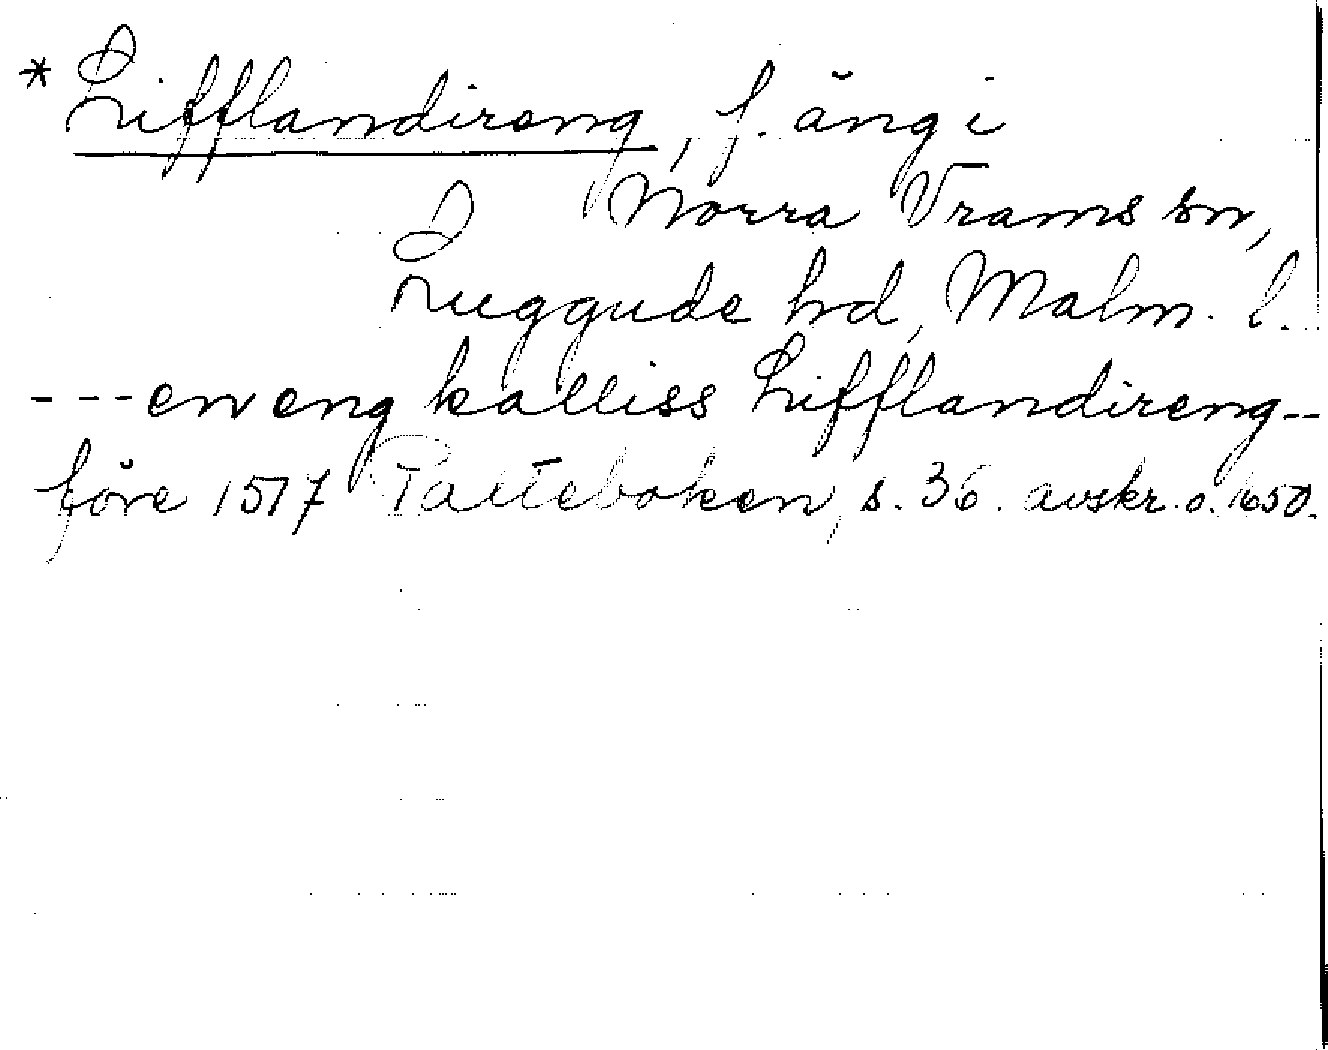 * Lifflandireng, f. äng i
Norra Vrams sn,
Luggude hd, Malm. l.
---en eng kalliss Lifflandireng--
före 1517 Palteboken, s. 36. avskr. o. 1650.